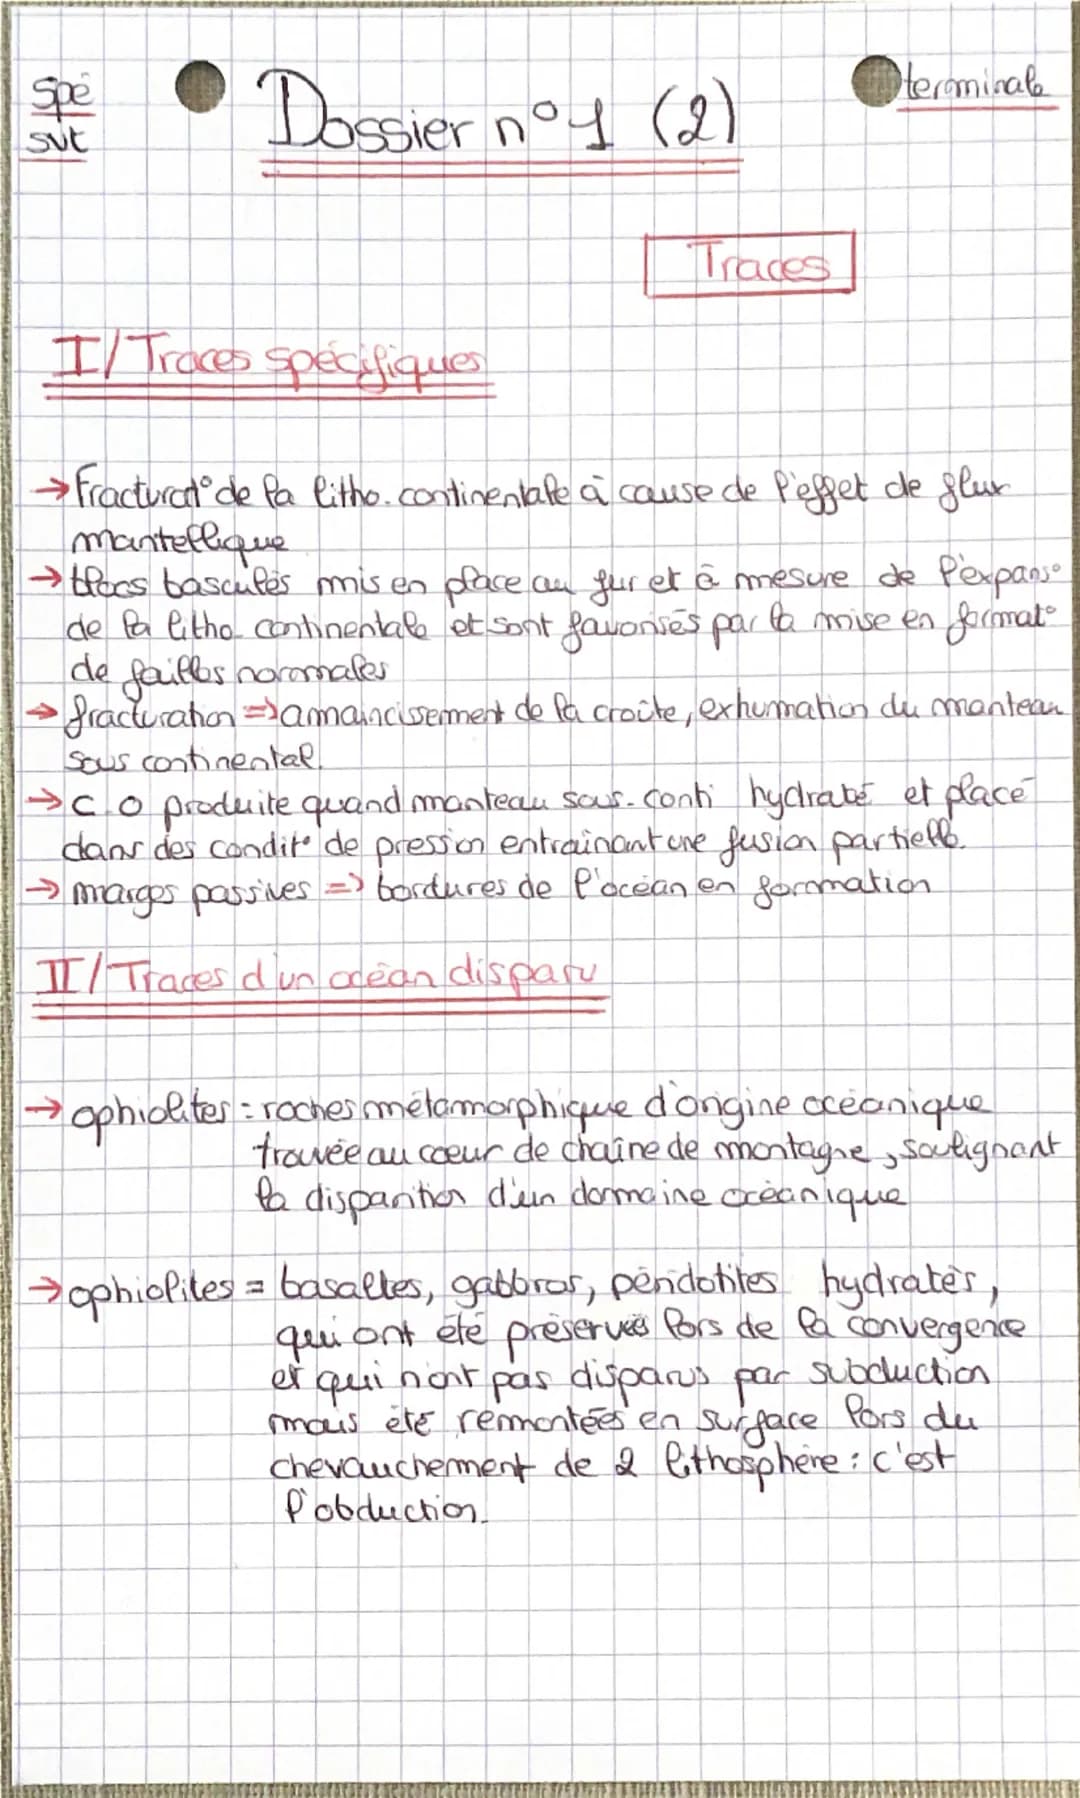 Spé
SVT
Dossier n°1 (2)
terminale
Traces
I/ Traces spécifiques
→ Fracturat° de la litho. continentale à cause de l'effet de flux
mantellique
→ blocs basculés mis en place au fur et à mesure de l'expans°
de la litho. continentale et sont favorisés par la mise en format°
de failles normales
→ fracturation => amaincissement de la croûte, exhumation du manteau
sous continental.
→ C.O produite quand manteau sous-conti hydraté et placé
dans des condit° de pression entrainant une fusion partielle.
→ marges passives => bordures de l'océan en formation
II/ Traces d'un océan disparu
→ ophiolites = roches métamorphique d'origine océanique
trouvée au cœur de chaîne de montagne, soulignant
la disparition d'un domaine océanique
→ ophiolites = basaltes, gabbros, péridotites hydratés,
qui ont été préservés lors de la convergence
et qui n'ont pas disparus par subduction
mais été remontées en surface lors du
chevauchement de 2 lithosphère : c'est
l'obduction.